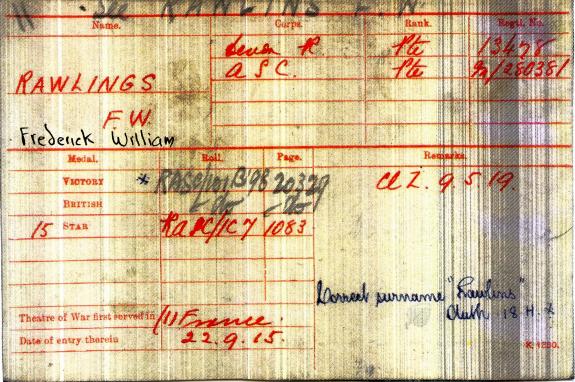 See RAWLINS F.W.
Name. Corps. Rank. Regtl. No.
Devon R Pte 13478
RAWLINGS A S C. Pte /280381
F.W.
Frederick William
Medal. Roll. Page. Remarks.
VICTORY * RASC/101 B98 20329 Cl Z. 9.5.19.
BRITISH - do - - do -
15 STAR RASC/1C7 1083
Correct surname "Rawlins"
Auth 18 H.
Theatre of War first served in (1) France.
Date of entry therein 22.9.15.
K. 1380.